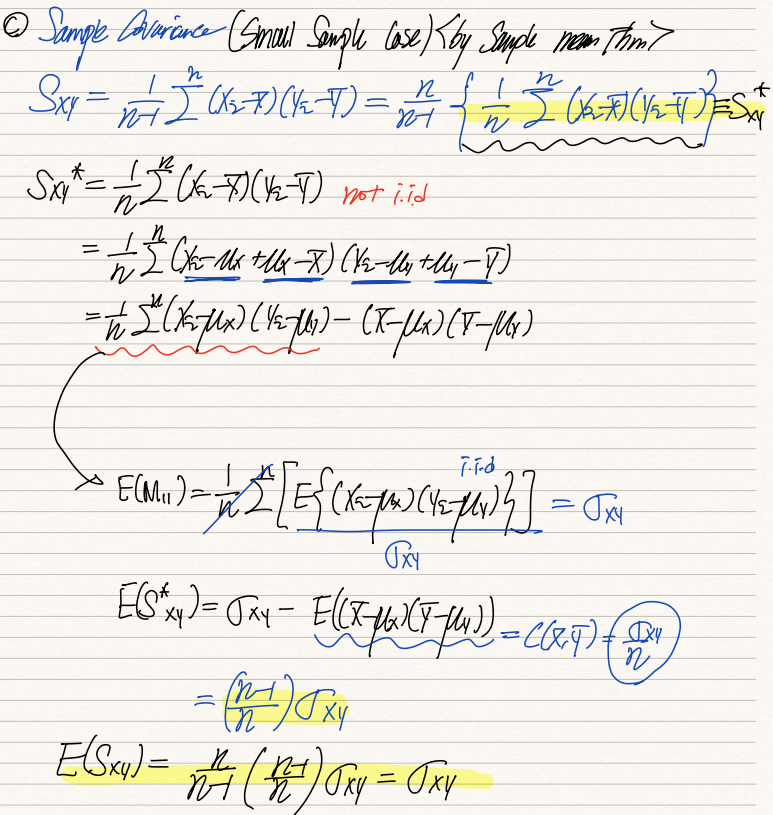 © Sample Covariance (Small Sample Case) <by Sample mean Thm>
S_XY = 1/(n-1) Σ^n (X_i - X̄)(Y_i - Ȳ) = n/(n-1) { 1/n Σ^n (X_i - X̄)(Y_i - Ȳ) } ≡ S_XY^*
S_XY^* = 1/n Σ^n (X_i - X̄)(Y_i - Ȳ) not i.i.d
= 1/n Σ^n (X_i - μ_X + μ_X - X̄)(Y_i - μ_Y + μ_Y - Ȳ)
= 1/n Σ^n (X_i - μ_X)(Y_i - μ_Y) - (X̄ - μ_X)(Ȳ - μ_Y)
i.i.d
E(M_11) = 1/n Σ^n [E{(X_i - μ_X)(Y_i - μ_Y)}] = σ_XY
σ_XY
E(S^*_XY) = σ_XY - E((X̄ - μ_X)(Ȳ - μ_Y)) = C(X̄, Ȳ) = σ_XY/n
= ((n-1)/n) σ_XY
E(S_XY) = n/(n-1) ((n-1)/n) σ_XY = σ_XY